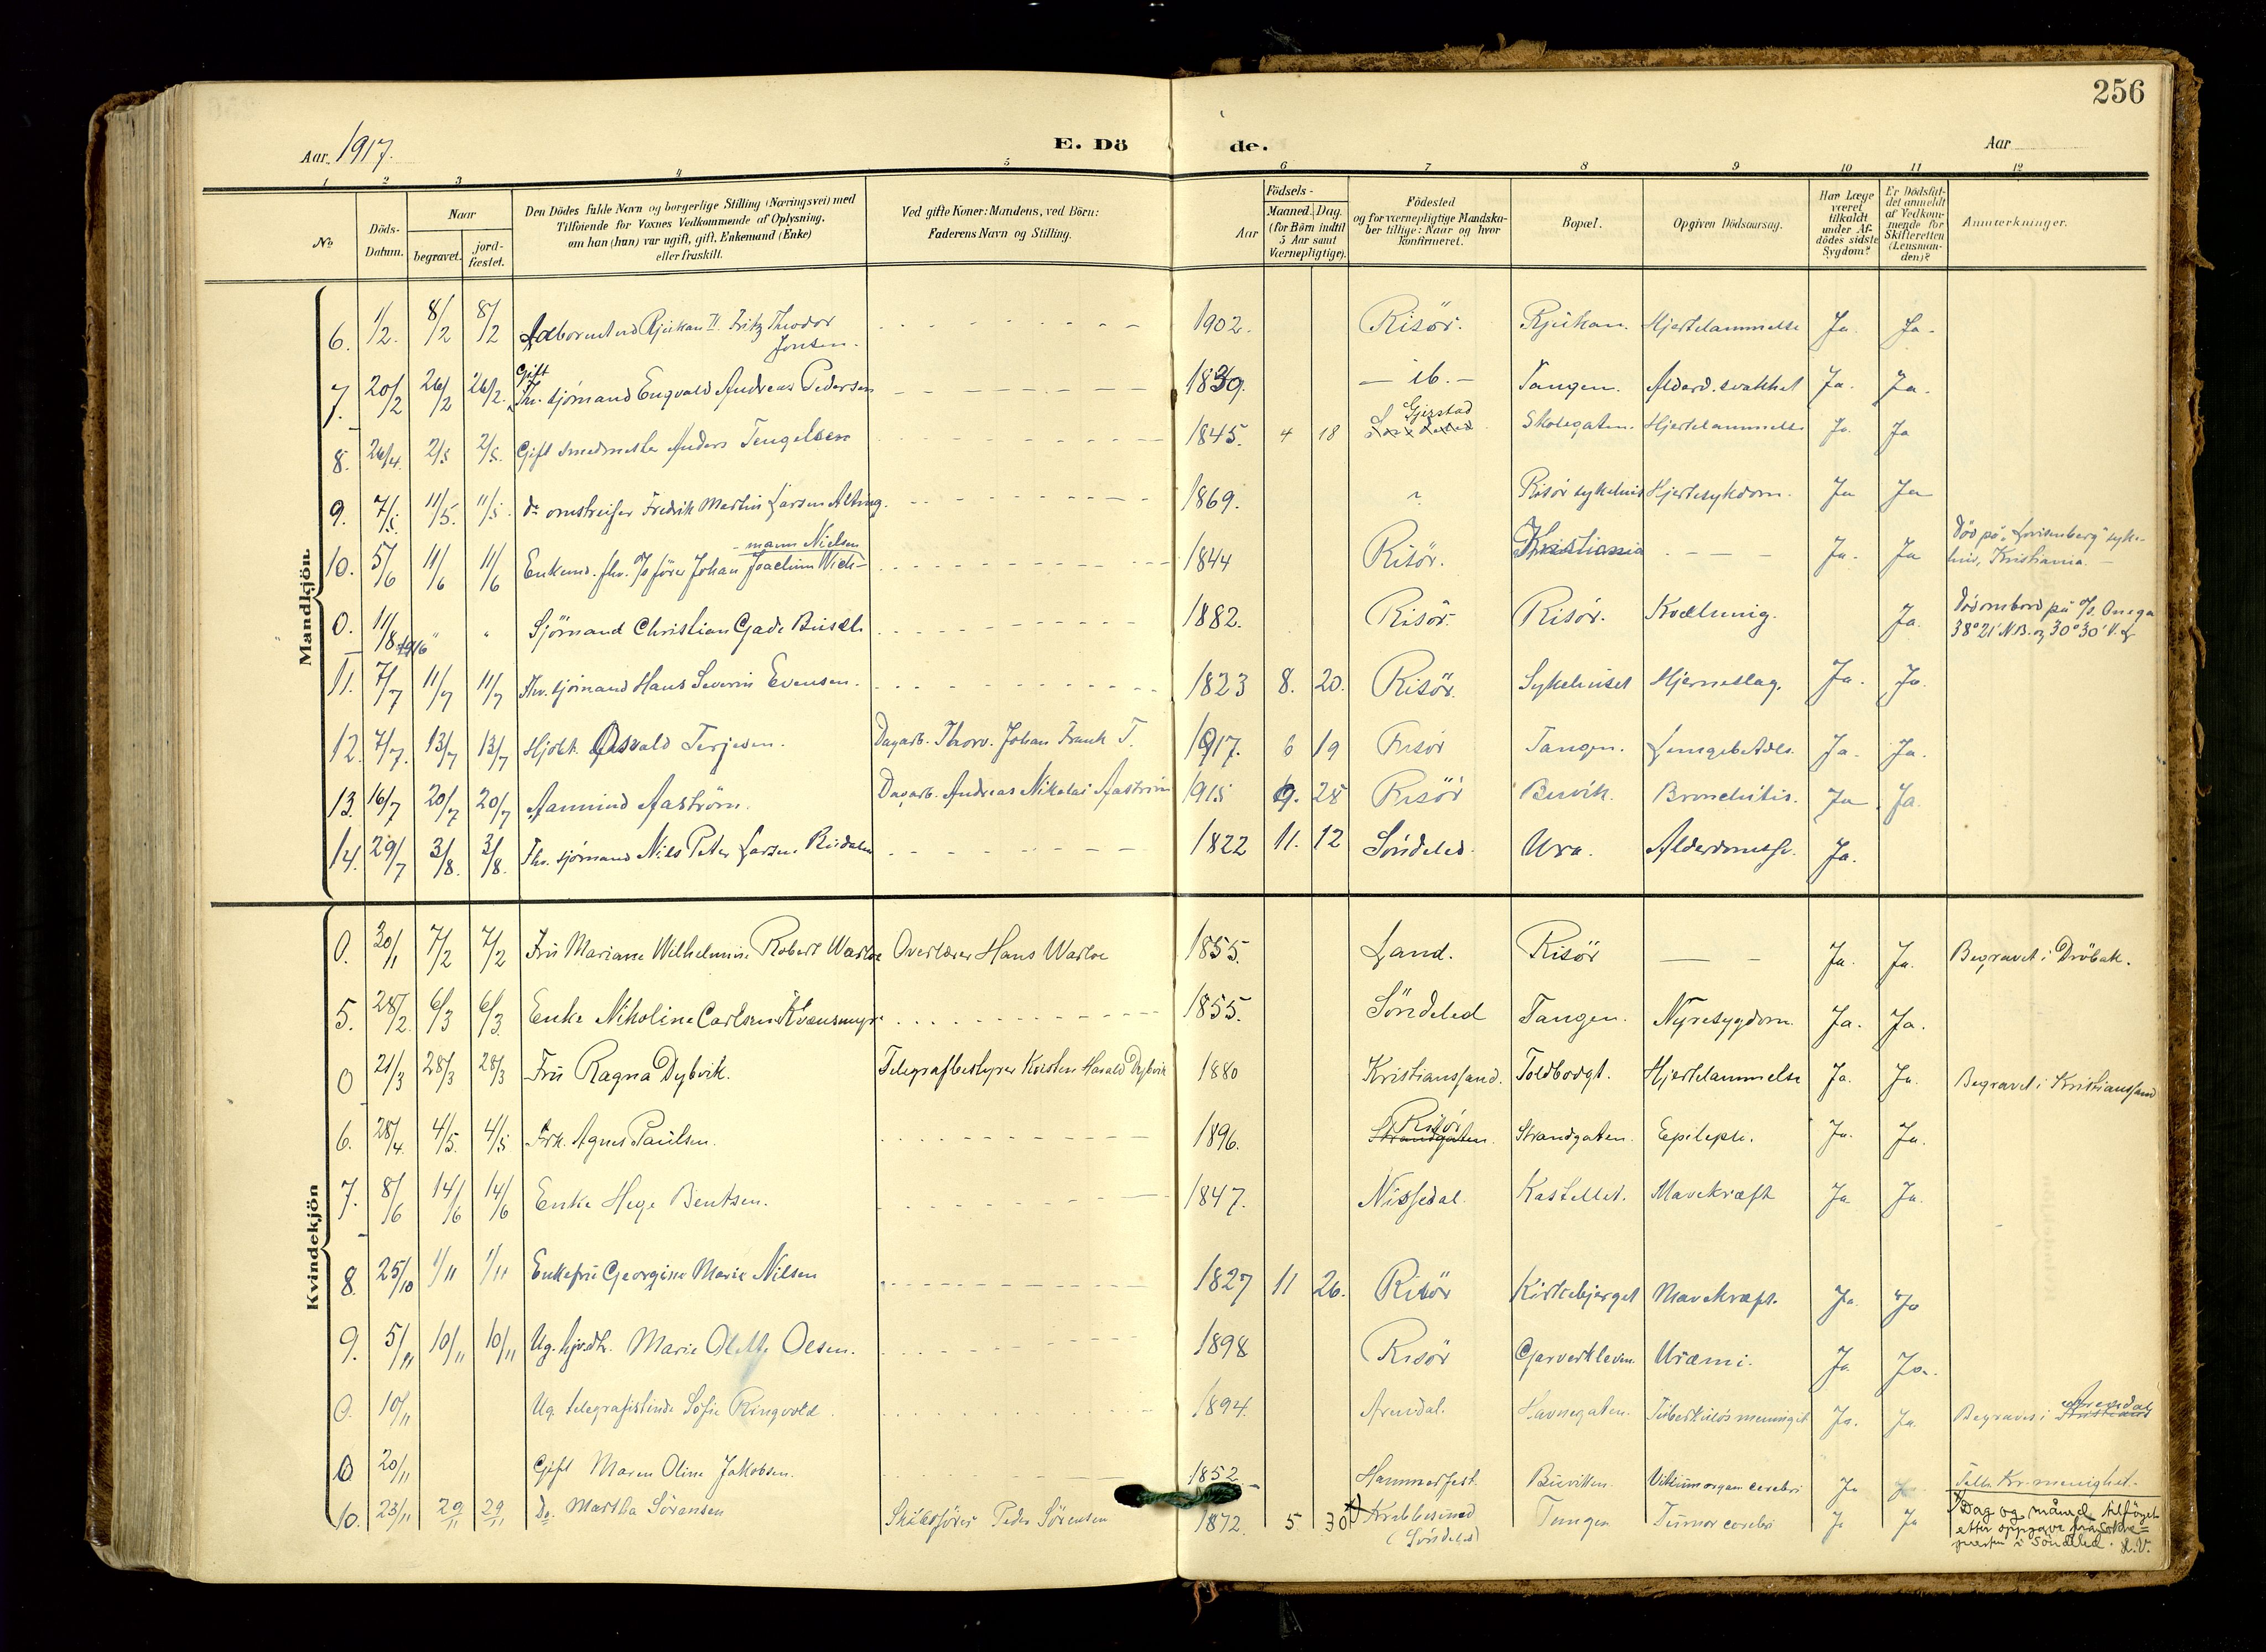 256
Aar 1917.
E. Dö
de.
Aar
1 2 3 4 5 6 7 8 9 10 11 12
No
Döds-Datum.
Naar
begravet. jord-fæstet.
Den Dödes fulde Navn og borgerlige Stilling (Næringsvei) med
Tilföiende for Voxnes Vedkommende af Oplysning,
om han (hun) var ugift, gift, Enkemand (Enke)
eller fraskilt.
Ved gifte Koner: Mandens, ved Börn:
Faderens Navn og Stilling.
Födsels-
Aar Maaned. Dag.
(for Börn indtil
5 Aar samt
Værnepligtige).
Födested
og for værnepligtige Mandska-
ber tillige: Naar og hvor
konfirmeret.
Bopæl.
Opgiven Dödsaarsag.
Har Læge
været
tilkaldt
under Af-
dödes sidste
Sygdom?
Er Dödsfal-
det anmeldt
af Vedkom-
mende for
Skifteretten
(Lensman-
den)?
Anmærkninger.
Mandkjön.
6. 1/2. 8/2 8/2 Rjukan II. Fritz Theodor Jensen. 1902. Risör. Rjukan. Hjertelammelse Ja. Ja.
7. 20/2 26/2 26/2. Gift Fhv. sjömand Engvald Andreas Pedersen 1839. - ib. - Tangen. Alderd. svakhet Ja. Ja.
8. 26/4. 2/5 2/5. Gift smedmester Anders Tengelsen 1845. 4 18 Gjerstad Skolegaten. Hjertelammelse Ja. Ja
9. 7/5. 11/5. 11/5. do omstreifer Fredrik Martin Larsen Alting. 1869. ? Risör sykehus Hjertesykdom. Ja Ja
10. 5/6 11/6 11/6 Enkem. fhv. Johan Joachim Wich-mann Nielsen 1844 Risör. Kristiania Ja. Ja Död på "Lovisenberg" syke-
hus, Kristiania.
0. 11/8 1916 " " Sjömand Christian Gade Busch 1882. Risör Risör. Kvælning. Ja. Död ombord på Onega
38°21' N.B. og 30°30' V.L.
11. 7/7 11/7 11/7 Fhv. sjömand Hans Severin Evensen. 1823 8. 20. Risör. Sykehuset Hjerneslag. Ja. Ja.
12. 7/7. 13/7 13/7 Hjdöbt. Osvald Terjesen. Dagarb. Thorv. Johan Frank T. 1917. 6 19 Risör Tangen. Lungebetdls. Ja. Ja.
13. 16/7 20/7 20/7 Aamund Aaström. Dagarb. Andreas Nikolai Aaström 1915 9. 28 Risör Buvik. Bronchitis. Ja Ja.
14. 29/7 3/8. 3/8. Fhv. sjömand Nils Peter Larsen Rusdalen 1822 11. 12 Söndeled. Ura. Alderdomssv. Ja.
Kvindekjön
0. 30/1 7/2 7/2 Fru Mariane Wilhelmine Robert Warloe Overlærer Hans Warloe 1855. Land. Risör Ja. Ja. Begravet i Dröbak.
5. 28/2. 6/3 6/3 Enke Nikoline Carlsen Kvensmyr. 1855. Söndeled Tangen. Nyresygdom. Ja. Ja.
0 21/3 28/3 28/3 Fru Ragna Dybvik. Telegrafbestyrer Kristen Harald Dybvik 1880 Kristianssand. Toldbodgt. Hjertelammelse Ja. Ja. Begravet i Kristianssand
6. 28/4. 4/5. 4/5 Frk. Agnes Paulsen. 1896. Strandgaten. Risör Strandgaten. Epilepsi. Ja. Ja.
7. 8/6 14/6 14/6 Enke Hege Bentsen. 1847. Nissedal. Kastellet. Mavekræft Ja Ja.
8. 25/10 1/11 1/11 Enkefru Georgine Marie Nilsen 1827 11 26. Risör Kirkebjerget Mavekræft. Ja. Ja
9. 5/11 10/11 10/11 Ug. hjvdtr. Marie Olette Olsen. 1898 Risör Garverkleven. Uræmi. Ja Ja.
0. 10/11 Ug. telegrafistinde Sofie Ringvold. 1894. Arendal. Havnegaten. Tuberkulös meningit Ja. Ja. Begraves i Kristians Arendal
0 20/11 Gift Maren Oline Jakobsen. 1852. Hammerfest. Buvikken. Vitium organ cerebri Ja Ja Kr. menighet.
10. 23/11 29/11 29/11 Do. Martha Sörensen Skibsförer Peder Sörensen 1872. 5 30 x) Krabbesund
(Söndeled) Tangen Tumor cerebri Ja Ja x) Dag og måned tilföyet
etter oppgave fra sokne-
presten i Söndeled. L.V.